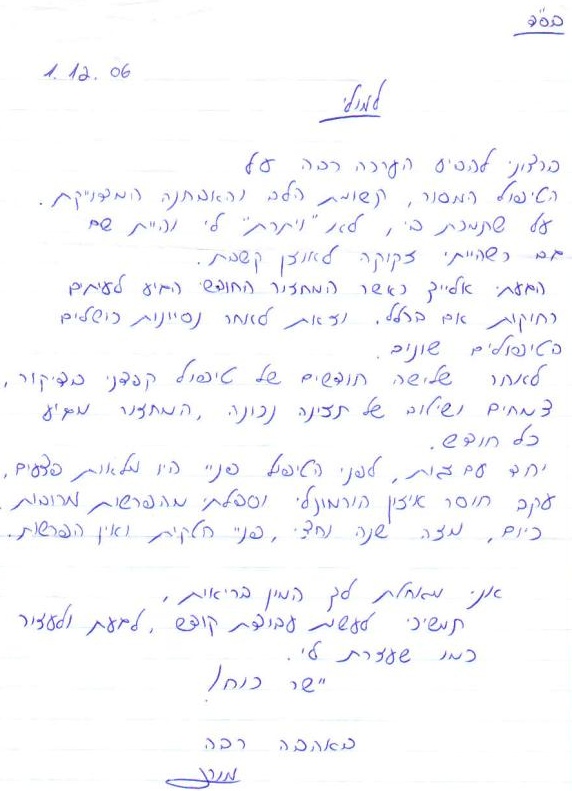 בס"ד
1.12.06
למולי
ברצוני להביע הערכה רבה על
הטיפול המסור, קשובת הלב והאבחנה המדוייקת.
על שתמכת בי, לא "ויתרת" לי והיית שם
גם כשהייתי זקוקה לאוזן קשבת.
הגעתי אלייך כאשר המחזור החודשי הגיע לעיתים
רחוקות אם בכלל. וזאת לאחר נסיונות כושלים
הטיפולים שונים.
לאחר שלישה חודשים של טיפול קפדני בדיקור,
צמחים ושילוב של תזונה נכונה, המחזור מגיע
כל חודש.
יחד עם זאת, לפני הטיפול פניי היו מלאות פצעים,
עקב חוסר איזון הורמונלי וסבלתי מהפרשות מרובות.
כיום, מזה שנה וחצי, פניי חלקות ואין הפרשות.
אני מאחלת לך המון בריאות,
תמשיכי לעשות עבודת קודש, לגעת ולעזור
כמו שעזרת לי.
יישר כוח!
באהבה רבה
מורן